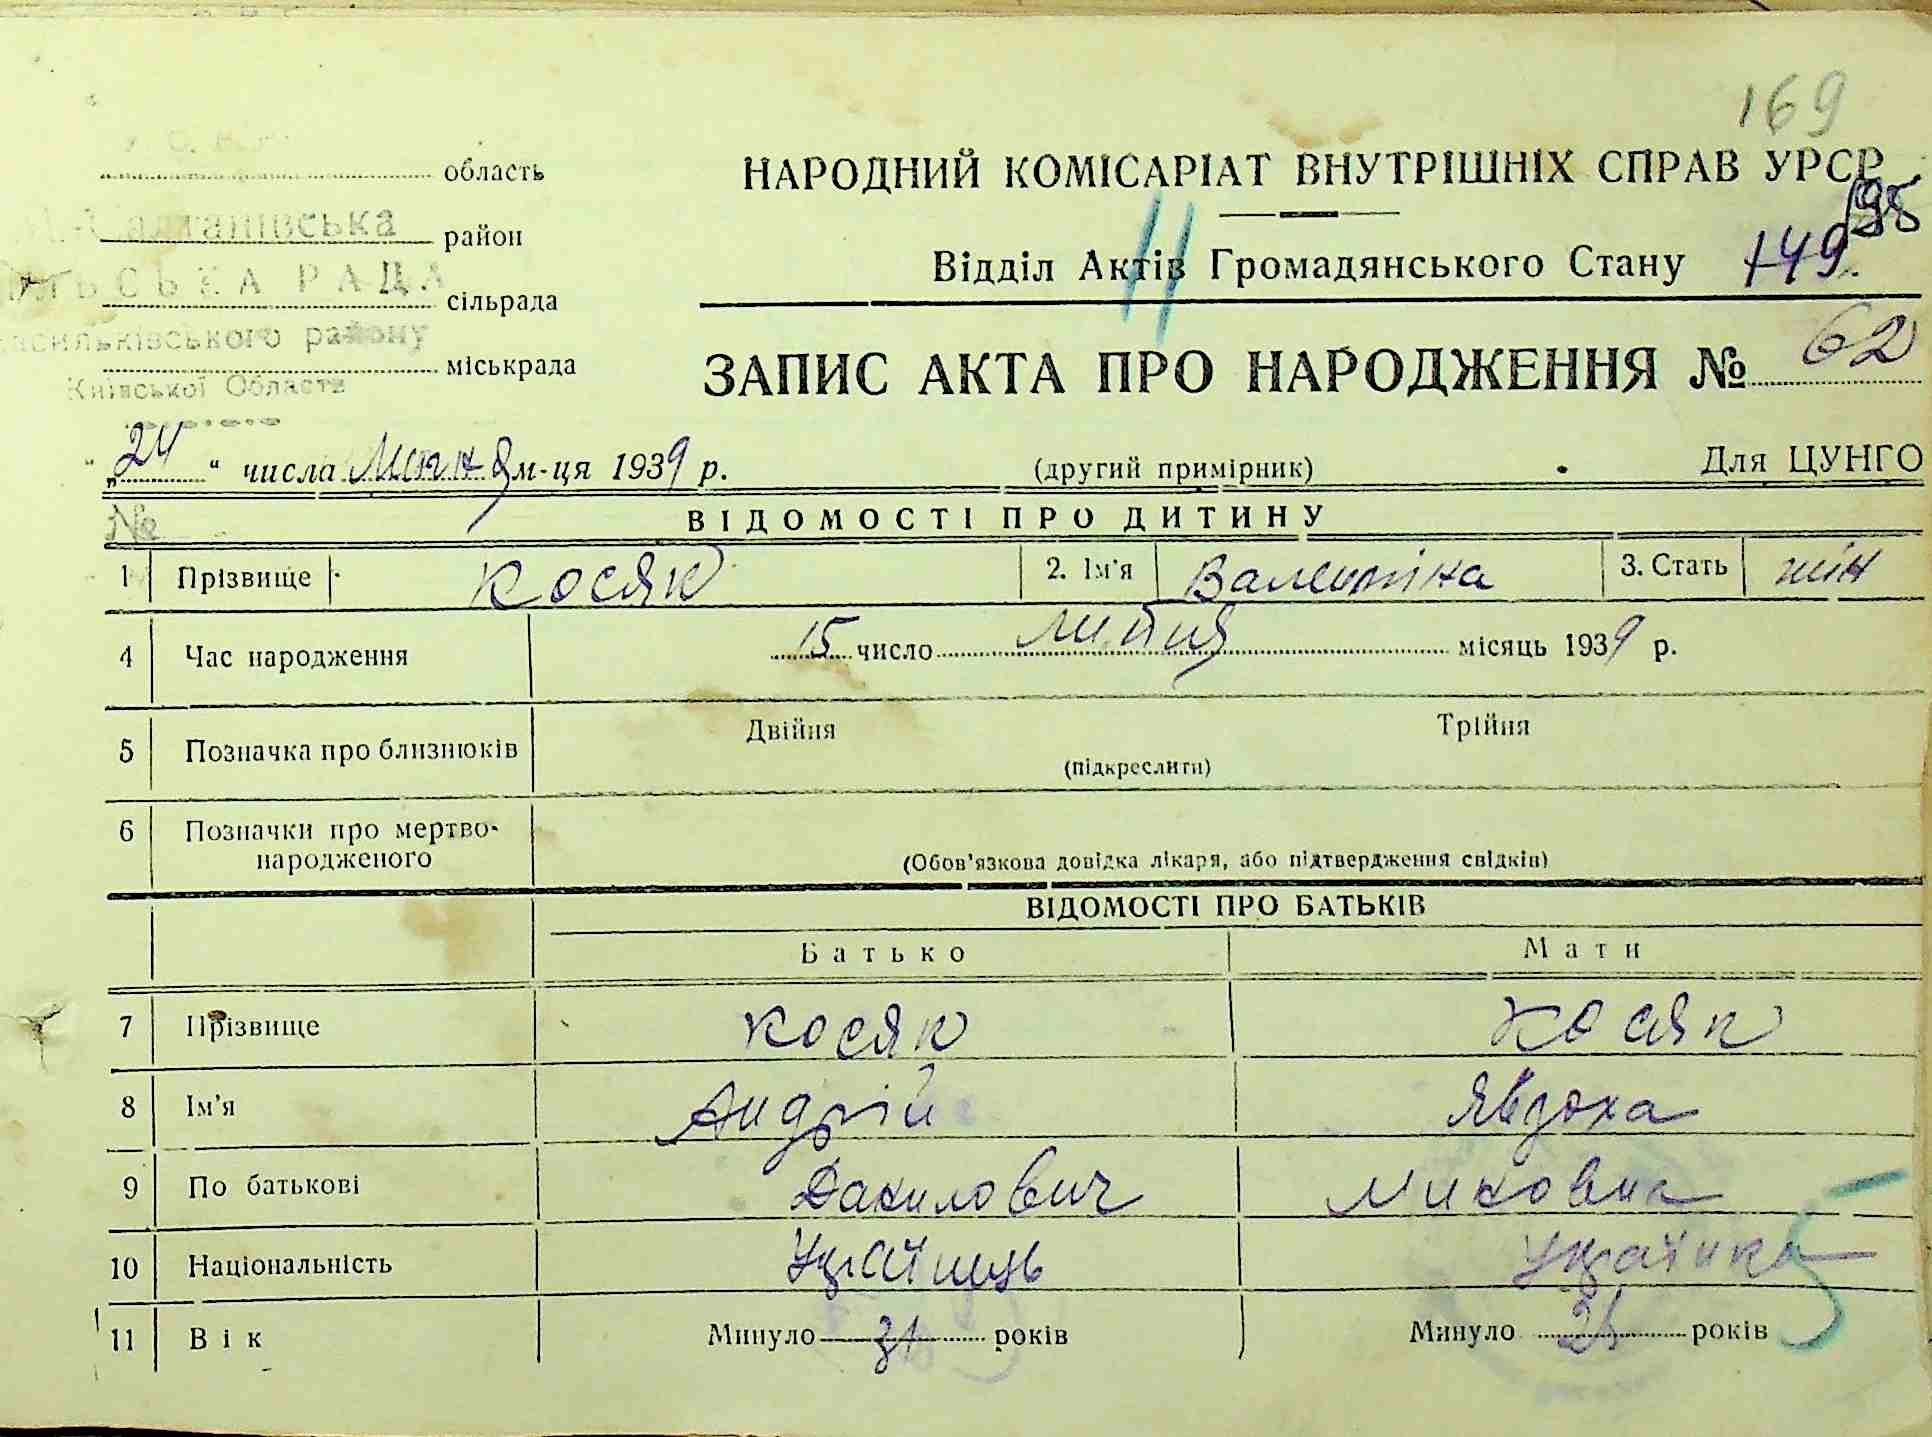 169
область
НАРОДНИЙ КОМІСАРІАТ ВНУТРІШНІХ СПРАВ УРСР
Салтанівська
район
198
РАДА
сільрада
Відділ Актів Громадянського Стану 149.
району
міськрада
Київської Области
ЗАПИС АКТА ПРО НАРОДЖЕННЯ № 62
„24“ числа Липня м-ця 1939 р. (другий примірник) Для ЦУНГО
№
ВІДОМОСТІ ПРО ДИТИНУ
1 Прізвище Косяк 2. Ім'я Валентіна 3. Стать жін
4 Час народження 15 число липня місяць 1939 р.
5 Позначка про близнюків Двійня Трійня
(підкреслити)
6 Позначки про мертво-
народженого (Обов'язкова довідка лікаря, або підтвердження свідків)
ВІДОМОСТІ ПРО БАТЬКІВ
Батько Мати
7 Прізвище Косяк Косяк
8 Ім'я Андрій Явдоха
9 По батькові Данилович
10 Національність Українець Українка
11 Вік Минуло 31 років Минуло років